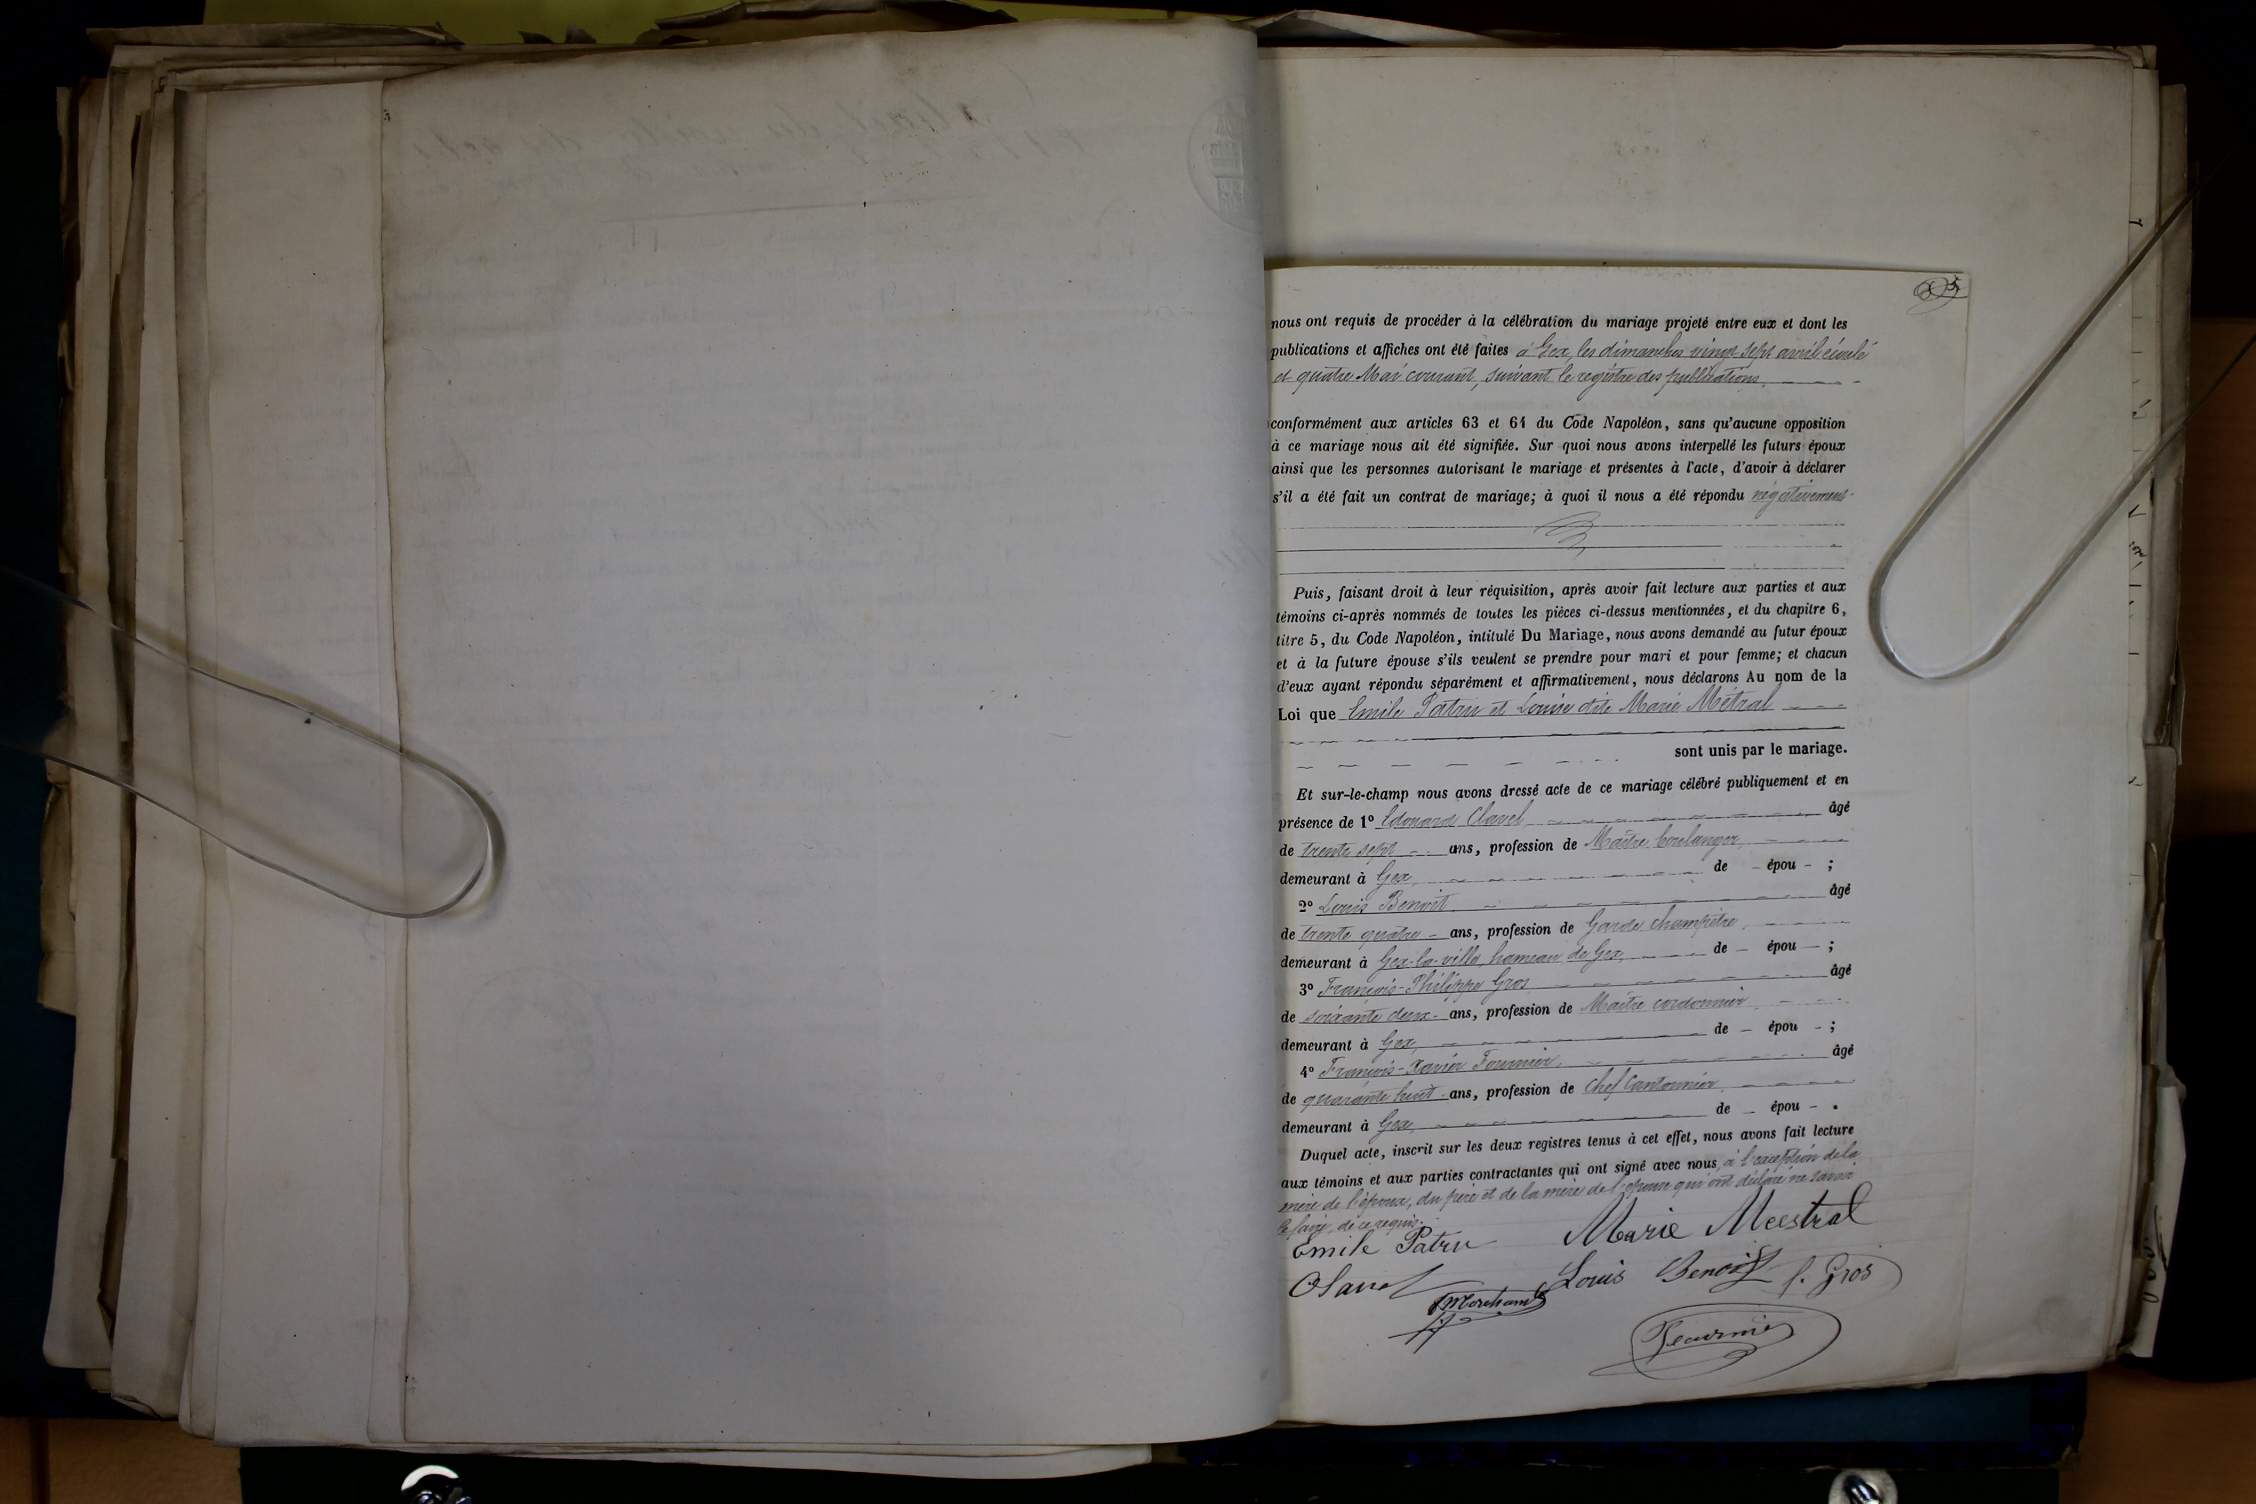 nous ont requis de procéder à la célébration du mariage projeté entre eux et dont les
publications et affiches ont été faites à Gex, les dimanches vingt sept avril écoulé
et quatre Mai courant, suivant le registre des publications.
conformément aux articles 63 et 64 du Code Napoléon, sans qu'aucune opposition
à ce mariage nous ait été signifiée. Sur quoi nous avons interpellé les futurs époux
ainsi que les personnes autorisant le mariage et présentes à l'acte, d'avoir à déclarer
s'il a été fait un contrat de mariage; à quoi il nous a été répondu négativement
Puis, faisant droit à leur réquisition, après avoir fait lecture aux parties et aux
témoins ci-après nommés de toutes les pièces ci-dessus mentionnées, et du chapitre 6,
titre 5, du Code Napoléon, intitulé Du Mariage, nous avons demandé au futur époux
et à la future épouse s'ils veulent se prendre pour mari et pour femme; et chacun
d'eux ayant répondu séparément et affirmativement, nous déclarons Au nom de la
Loi que Emile Patru et Louise dite Marie Métral
sont unis par le mariage.
Et sur-le-champ nous avons dressé acte de ce mariage célébré publiquement et en
présence de 1° Edouard Clavel âgé
de trente sept ans, profession de Maître boulanger,
demeurant à Gex, de - épou - ;
2° Louis Benoit âgé
de trente quatre - ans, profession de Garde champêtre,
demeurant à Gex-la-ville, hameau de Gex, de - épou - ;
3° François-Philippe Gros âgé
de soixante deux - ans, profession de Maître cordonnier,
demeurant à Gex, de - épou - ;
4° François-Xavier Fournier, âgé
de quarante huit - ans, profession de Chef Cantonnier,
demeurant à Gex, de - épou - .
Duquel acte, inscrit sur les deux registres tenus à cet effet, nous avons fait lecture
aux témoins et aux parties contractantes qui ont signé avec nous, à l'exception de la
mère de l'époux, du père et de la mère de l'épouse qui ont déclaré ne savoir
le faire, de ce requis.
Emile Patru Marie Meestral
Clavel Louis Benoit f. Gros
Marchand
Fournier